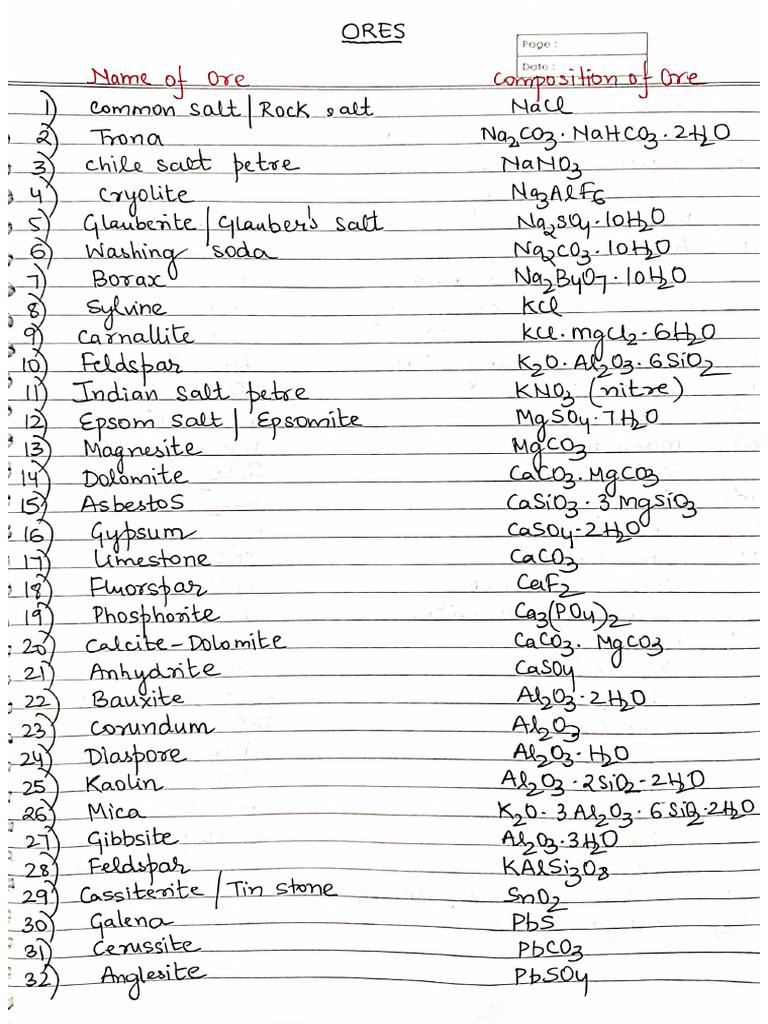 ORES
Page :
Date :
Name of Ore Composition of Ore
1) Common salt / Rock salt NaCl
2) Trona Na₂CO₃·NaHCO₃·2H₂O
3) Chile salt petre NaNO₃
4) Cryolite Na₃AlF₆
5) Glauberite / Glauber's salt Na₂SO₄·10H₂O
6) Washing soda Na₂CO₃·10H₂O
7) Borax Na₂B₄O₇·10H₂O
8) Sylvine KCl
9) Carnallite KCl·MgCl₂·6H₂O
10) Feldspar K₂O·Al₂O₃·6SiO₂
11) Indian salt petre KNO₃ (nitre)
12) Epsom salt / Epsomite MgSO₄·7H₂O
13) Magnesite MgCO₃
14) Dolomite CaCO₃·MgCO₃
15) Asbestos CaSiO₃·3MgSiO₃
16) Gypsum CaSO₄·2H₂O
17) Limestone CaCO₃
18) Fluorspar CaF₂
19) Phosphorite Ca₃(PO₄)₂
20) Calcite-Dolomite CaCO₃·MgCO₃
21) Anhydrite CaSO₄
22) Bauxite Al₂O₃·2H₂O
23) Corundum Al₂O₃
24) Diaspore Al₂O₃·H₂O
25) Kaolin Al₂O₃·2SiO₂·2H₂O
26) Mica K₂O·3Al₂O₃·6SiO₂·2H₂O
27) Gibbsite Al₂O₃·3H₂O
28) Feldspar KAlSi₃O₈
29) Cassiterite / Tin stone SnO₂
30) Galena PbS
31) Cerussite PbCO₃
32) Anglesite PbSO₄